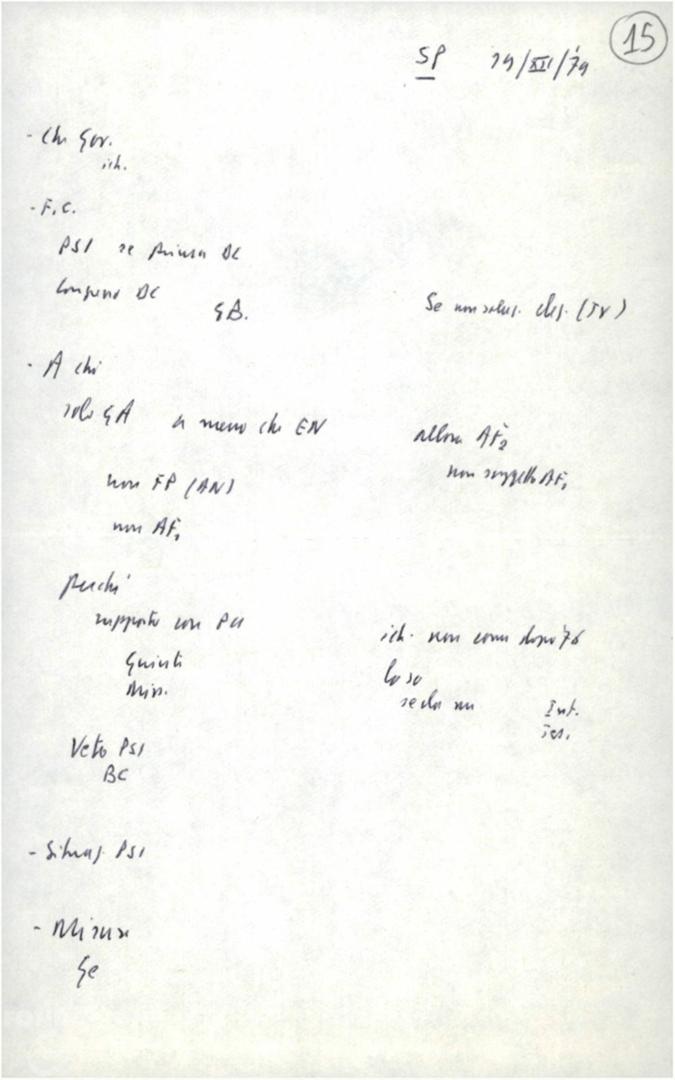 15
SP 19/XII/79
- Chi Gov.
ich.
- F.C.
PSI se prima DC
Congresso DC
GB.
Se non soluz. eleg. (IV)
- A chi
solo GA a meno che EN
allora AF2
non suggello AF1
non FP (AN)
non AF1
perché
rapporto con PCI
ich. non come dopo '76
Quinti
lo so
Min.
se da noi Int.
Veto PSI
BC
- Situaz. PSI
- Misure
Ge